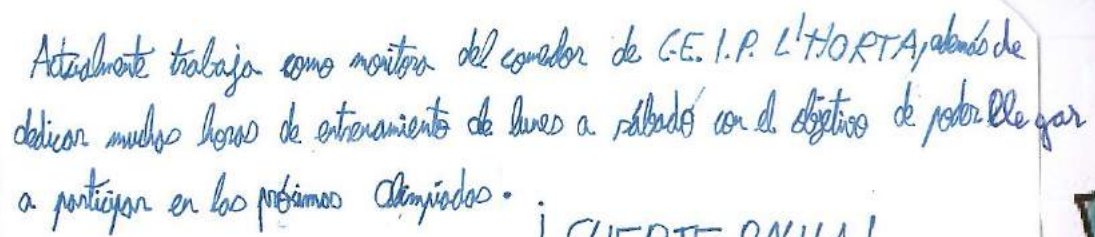 Actualmente trabaja como monitora del comedor de C.E.I.P. L'HORTA, además de
dedicar muchas horas de entrenamiento de lunes a sábado con el objetivo de poder llegar
a participar en las próximas Olimpiadas.
¡